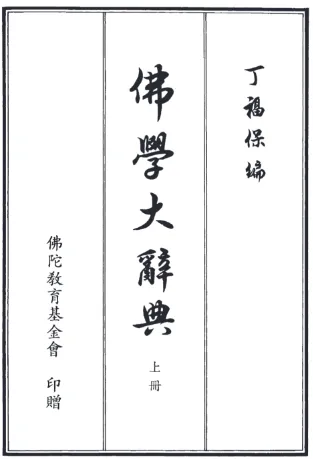 丁福保編
佛學大辭典
上冊
佛陀教育基金會 印贈